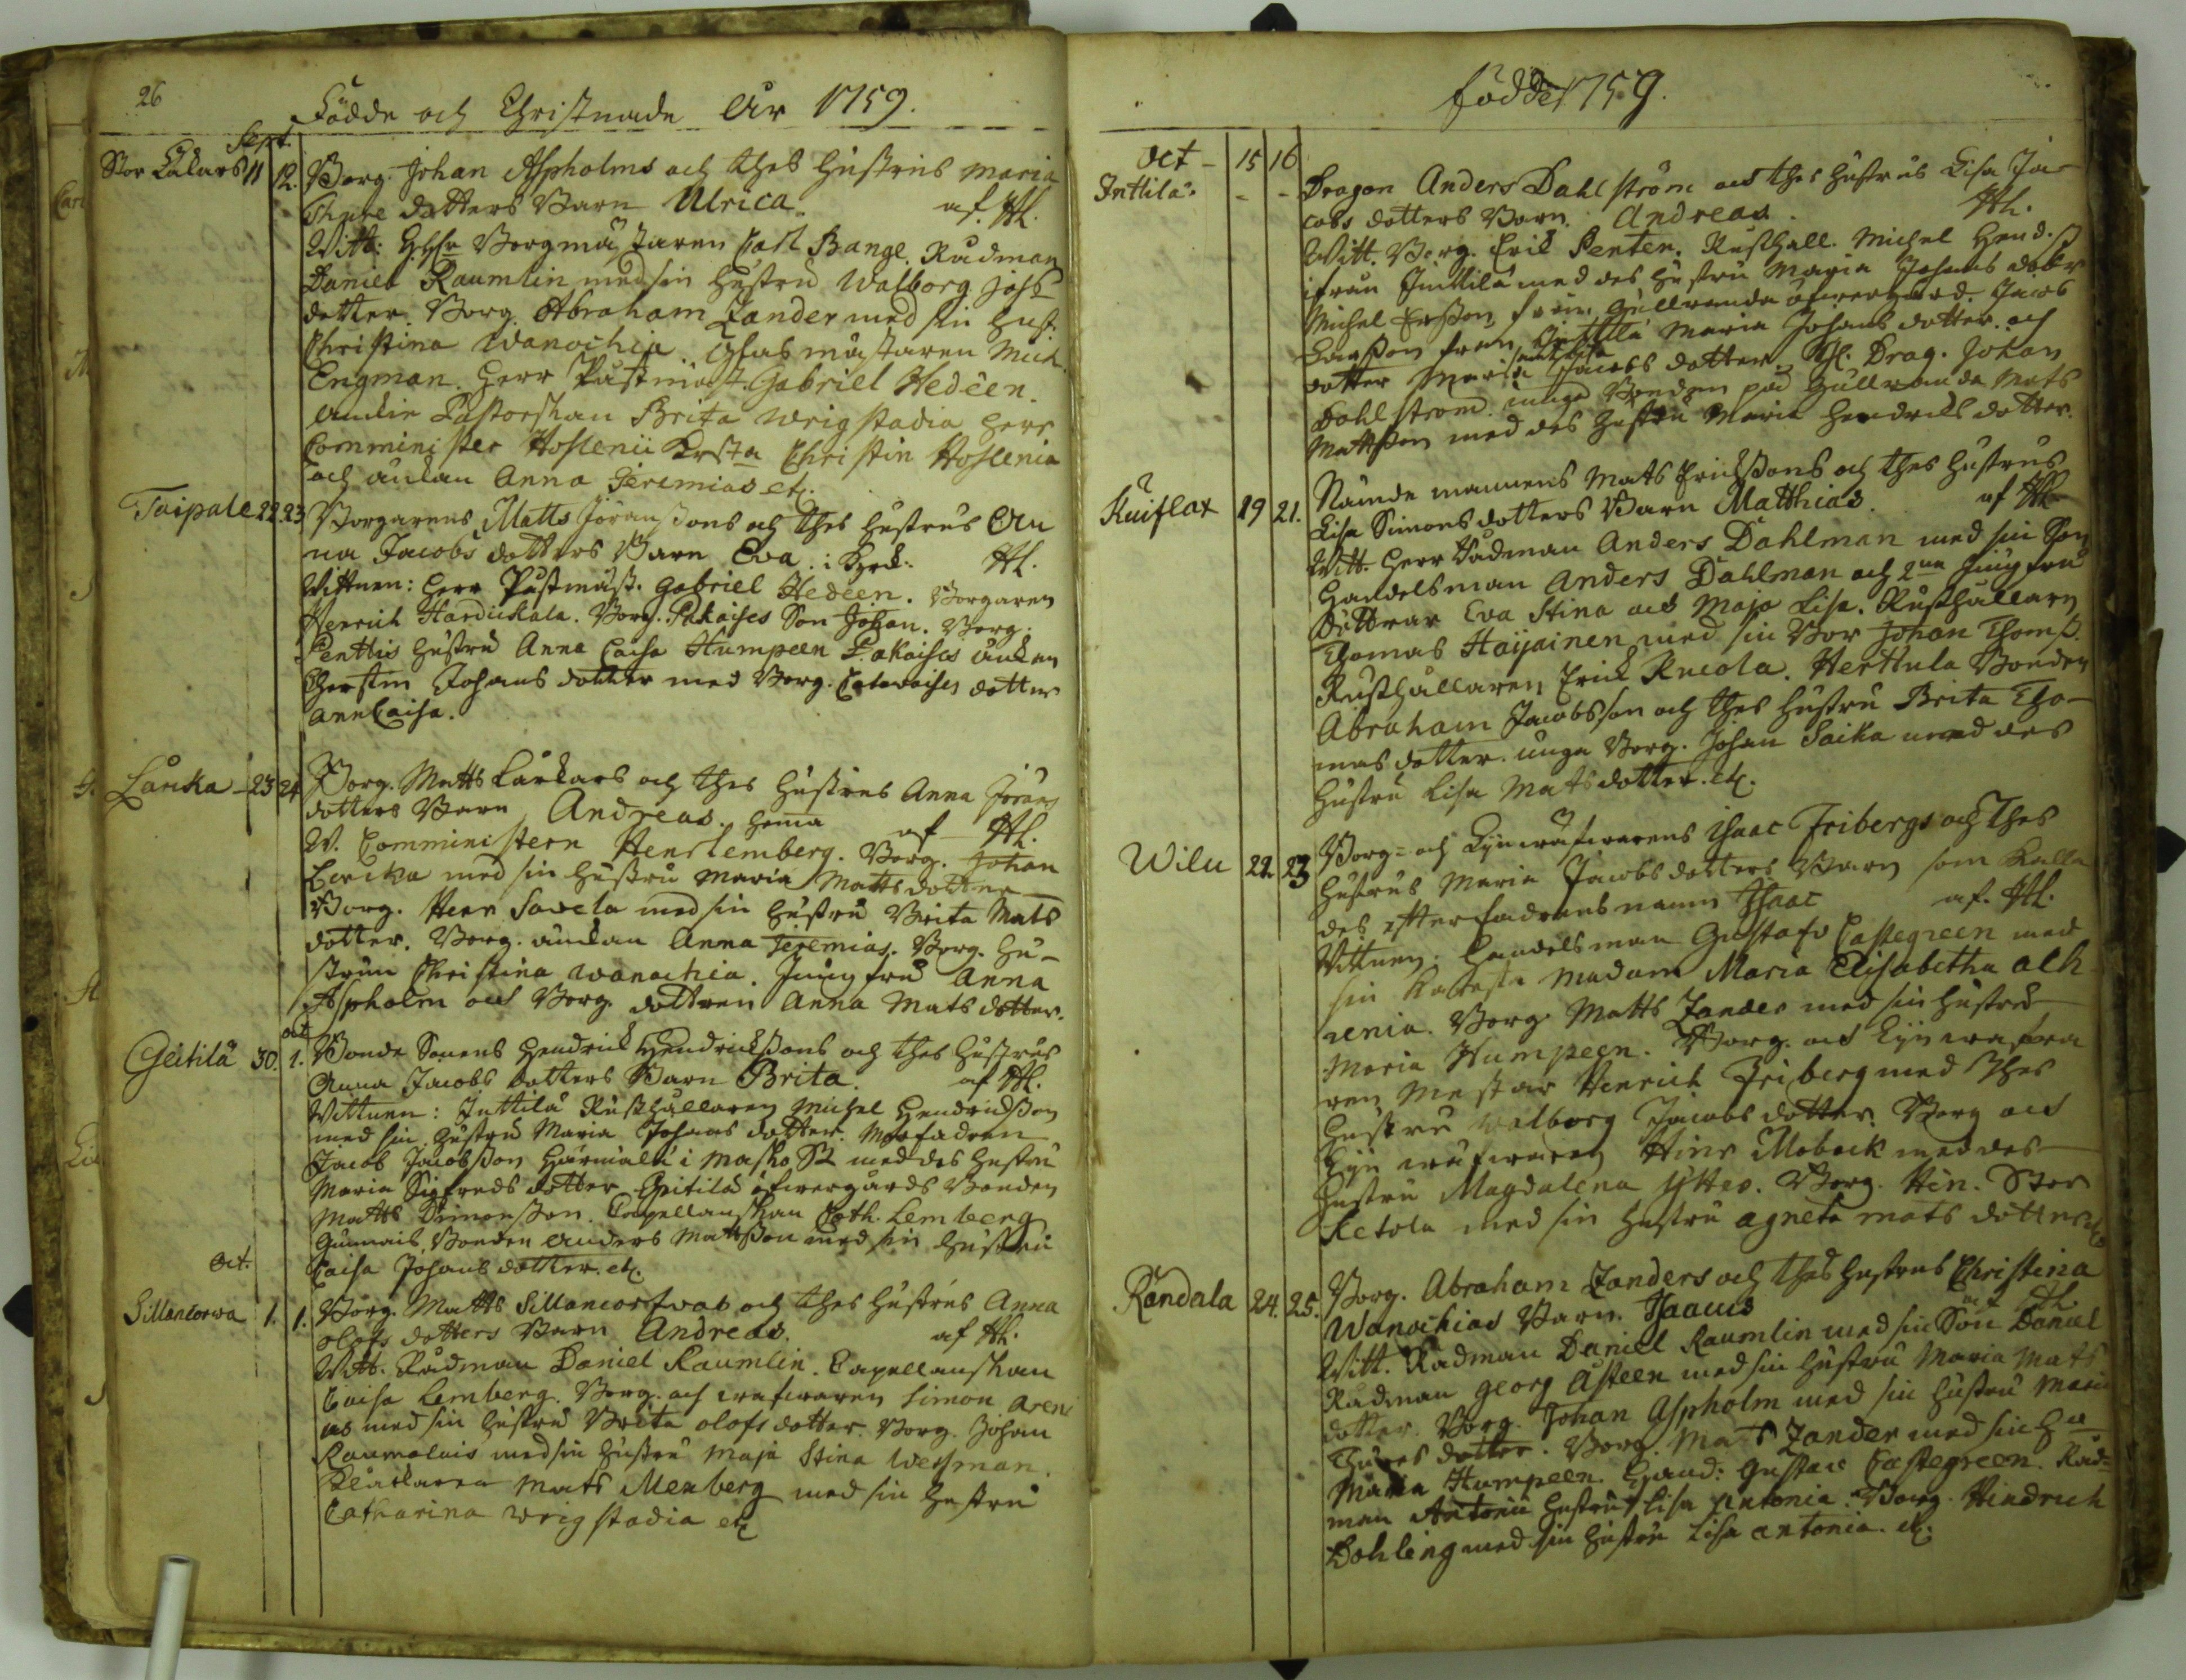 26
Födde och Christnade Åhr 1759.
Sept.
Stor Lukars 11 12. Borg. Johan Aspholms och thes hustrus Maria
Thure dotters Barn Ulrica. af. Hl.
Witt: H. Hr Borgmästaren Carl Bange. Rådman
Daniel Raumlin med sin hustru Walborg Johs
dotter. Borg. Abraham Zander med sin hust.
Christina Wanochia. mästaren Mich.
Engman. Herr Påstmäst. Gabriel Hedéen.
Enkie Pastorskan Brita Wrigstadia Herr
Comminister Hoslenii Christin Hoslenia
och ankan Anna Jeremias etc.
Taipale 22 23 Borgarens Matts Jöranssons och thes hustrus An
na Jacobs dotters Barn Eva i Kyrk. Hl.
Wittnen: Herr Påstmäst. Gabriel Hedéen. Borgaren
Henrich Hardickala. Borg. Pakaises Son Johan. Borg.
Penttis hustru Anna Caisa Humpeen Pakaises ankan
Cherstin Johans dotter med Borg. dotter
AnnCaisa.
Lauka 23 24 Borg. Matts Laukars och thes hustrus Anna Jörans
dotters Barn Andreas. hema af Hl.
W. Comministern Hens Lemberg. Borg. Johan
Lerika med sin hustru Maria Matts dotter
Borg. Henr Savela med sin hustru Brita Mats
dotter. Borg. ankan Anna Jeremias. Borg. hu-
strun Christina Wanochia. Jungfru Anna
Aspholm och Borg. dottren Anna Mats dotter.
oct
Geitilä 30. 1. Bonde Sonens Hendrick Hendrickssons och thes hustrus
Anna Jacobs dotters Barn Brita. af Hl.
Wittnen: Inttilä Rusthållaren Michel Hendricksson
med sin hustru Maria Johans dotter. Morfadren
Jacob Jacobsson Härmälä i Masko Sn med des hustru
Maria Sigfreds dotter Geitilä öfwergårds Bonden
Matts Simonsson. Capellanskan Cath. Lemberg
Gunnais Bonden Anders Mattsson med sin hustru
Caisa Johans dotter. etc.
Oct.
Sillancorwa 1. 1. Borg. Matts Sillancorfwas och thes hustrus Anna
Olofs dotters Barn Andreas. af Hl.
Witt. Rådman Daniel Raumlin. Capellanskan
Caisa Lemberg. Borg. och wafwaren Simon Aren
us med sin hustru Brita Olofs dotter. Borg. Johan
Raumolais med sin hustru Maja Stina Wessman.
Klåckaren Mats Menberg med sin hustru
Catharina Wrigstadia etc
födde 1759.
Oct - 15 16
Inttilä. - - Dragon Anders Dahlström och thes hustrus Lisa Ja-
cobs dotters Barn. Andreas. Hl.
Witt. Borg. Erik Penten. Rusthåll. Michel Hend.s.
ifrån Inttilä med des hustru Maria Johans dotr
Michel Ersson från Gullranda öfwergård. Jacob
Larsson från Inttilä Maria Johans dotter och
dotter Maria Jacobs dotter. Gl. Drag. Johan
Dahlström. unga Bonden på Gullranda Mats
Mattsson med des hustru Maria Hendrichs dotter.
Kuiflax 19 21. Nämde mannens Mats Erichssons och thes hustrus
Lisa Simons dotters Barn Matthias. af Hl
Witt. Herr Rådman Anders Dahlman med sin Son
Handelsman Anders Dahlman och 2ne jungfru
Döttrar Eva Stina och Maja Lisa. Rusthållaren
Thomas Haijainen med sin Bror Johan Thomss.
Rusthållaren Erick Rucola. Herttula Bonden
Abraham Jacobsson och thes hustru Brita Tho-
mas dotter. unga Borg. Johan Saika med des
hustru Lisa Mats dotter. etc.
Wilu 22. 23 Borg- och Lijnwäfwarens Isaac Fribergs och thes
hustrus Maria Jacobs dotters Barn som kalla
des efter fadrens namn Isaac af. Hl.
Wittnen. Handelsman Gustafv Castegreen med
sin Käresta Madam Maria Elisabetha Alh
renia. Borg. Matts Zander med sin hustru
Maria Humpeen. Borg. och Lijnwäfwa
ren Mestar Henrich Friberg med thes
hustru Walborg Jacobs dotter. Borg och
Lijnwäfwaren Hinr Moback med des
hustru Magdalena Ytter. Borg. Hin. Stor
Ketola med sin hustru Agneta Mats dotter etc
Randala 24. 25. Borg. Abraham Zanders och thes hustrus Christina
Wanochias Barn. Isaacus af Hl
Witt. Rådman Daniel Raumlin med sin Son Daniel
Rådman Georg Asteen med sin hustru Maria Mats
dotter. Borg. Johan Aspholm med sin hustru Maria
Thures dotter. Borg. Mats Zander med sin hu
Maria Humpeen. Hand: Gustav Castegreen. Råd-
man Antonii hustru Lisa Antonia. Borg. Hindrich
Bohleng med sin hustru Lisa Antonia. etc.